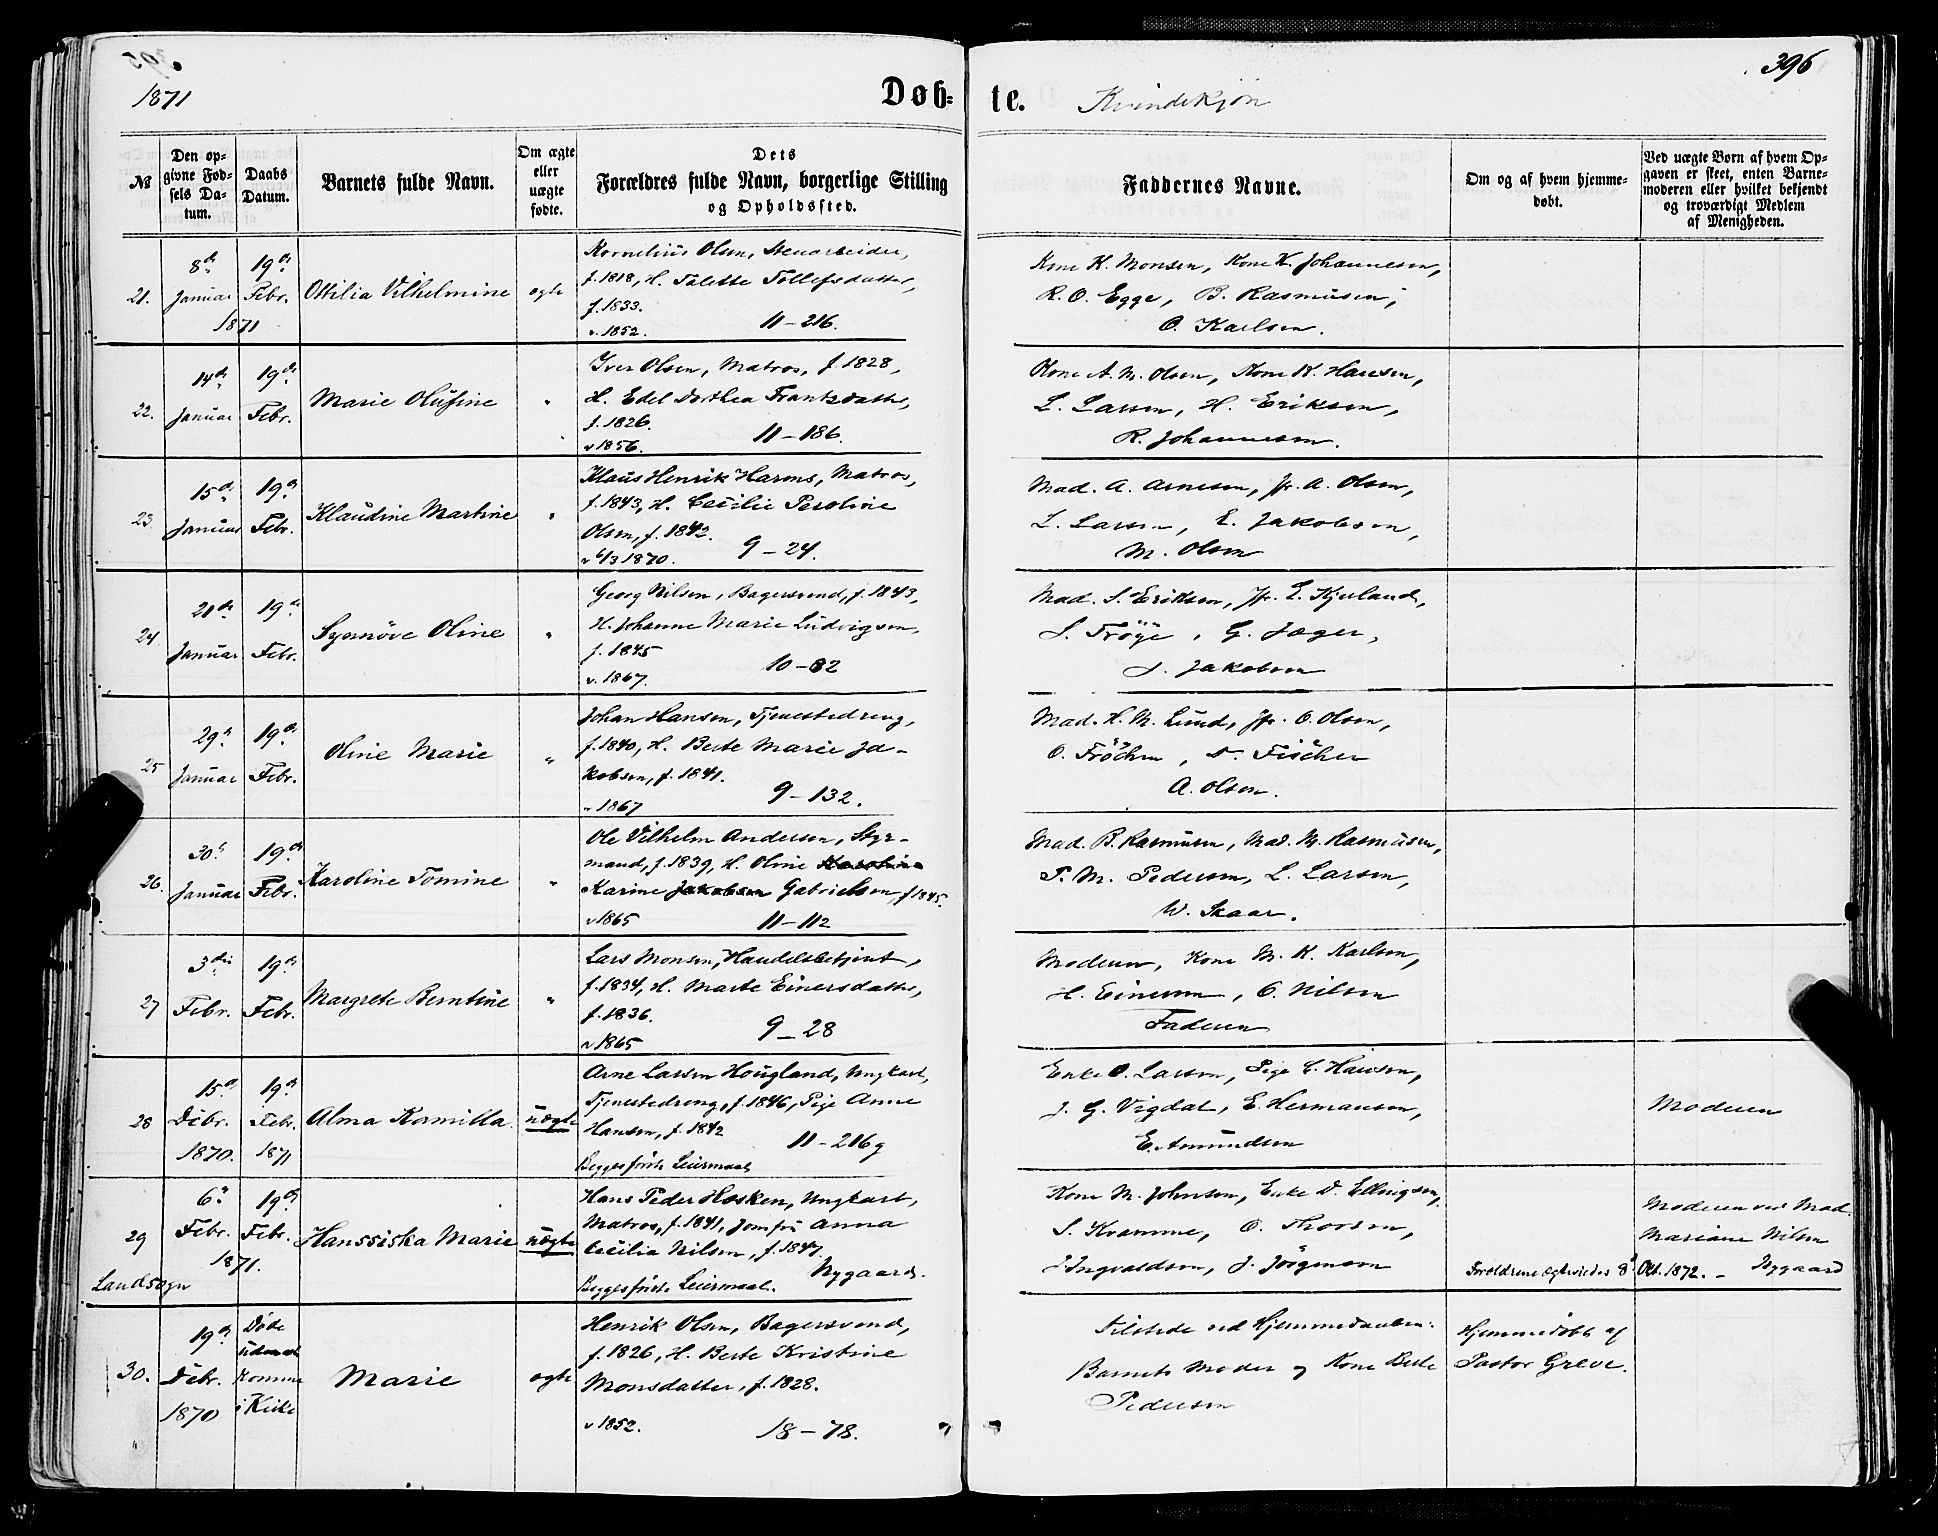 1871
Døb-
te.
Kvindekjøn
396
№
Den op-
givne Fød-
sels Da-
tum.
Daabs
Datum.
Barnets fulde Navn.
Om ægte
eller
uægte
fødte.
Dets
Forældres fulde Navn, borgerlige Stilling
og Opholdssted.
Faddernes Navne.
Om og af hvem hjemme-
døbt.
Ved uægte Børn af hvem Op-
gaven er skeet, enten Barne-
moderen eller hvilket bekjendt
og troværdigt Medlem
af Menigheden.
21.
8de
Januar
1871
19de
Febr.
Ottilia Vilhelmine
ægte
Kornelius Olsen, Stenarbeider,
f. 1818, H. Talette Tollefsdatter,
f. 1833.
v. 1852. 11-216.
Kone K. Monsen, Kone K. Johannesen,
R. O. Egge, B. Rasmusen,
O. Karlsen.
22.
14de
Januar
19de
Febr.
Marie Olufine
"
Iver Olsen, Matros, f. 1828,
H. Edel Dorthea Frantzdatter,
f. 1826.
v 1856. 11-186.
Kone A. M. Olsen, Kone K. Hansen,
L. Larsen, H. Eriksen,
R. Johannesen.
23
15de
Januar
19de
Febr.
Klaudine Martine
"
Klaus Henrik Harms, Matros,
f. 1843, H. Cecilie Peroline
Olsen, f. 1842.
v 6/3 1870. 9-24.
Mad. A. Arnesen, Jfr. A. Olsen,
L. Larsen, E. Jakobsen,
M. Olsen
24
21de
Januar
19de
Febr.
Synnöve Oline
"
Georg Nilsen, Bagersvend, f. 1843,
H. Johanne Marie Ludvigsen,
f. 1845
v. 1867. 10-82
Mad. S. Eriksen, Jfr. E. Kjeland,
S. Tröye, G. Jæger,
J. Jakobsen
25
29de
Januar
19de
Febr.
Oline Marie
"
Johan Hansen, Tjenestedreng,
f. 1840, H. Berte Marie Ja-
kobsen, f. 1841.
v 1867 9-132.
Mad. H. M. Lund, Jfr. O. Olsen,
O. Fröchen, D. Fischer
A. Olsen.
26.
30te
Januar
19de
Febr.
Karoline Tomine
"
Ole Vilhelm Andersen, Styr-
mand, f. 1839, H. Oline Karoline
Karine Jakobsen Gabrielsen, f 1845.
v 1865 11-112
Mad. B. Rasmusen, Mad. M. Rasmusen,
P. M. Pedersen, L. Larsen,
W. Skaar.
27
3die
Febr.
19de
Febr.
Margrete Berntine
"
Lars Monsen, Handelsbetjent,
f. 1834, H. Marte Einersdatter,
f. 1836.
v 1865 9-28
Moderen, Kone M. K. Karlsen,
H. Einersen, O. Nilsen
Faderen
28
15de
Dcbr.
1870.
19de
Febr.
1871
Alma Kamilla
uægte
Arne Larsen Hougland, Ungkarl,
Tjenestedreng, f. 1846, Pige Anne
Hansen, f. 1842
11-216g
Begges förste Leiermaal
Enke O. Larsen, Pige C. Hansen,
J. G. Vigdal, E. Hermansen,
E. Amundsen
Moderen
29
Landsogn
6te
Febr.
1871.
19de
Febr.
Hanssiska Marie
uægte
Hans Peder Hosken, Ungkarl,
Matros, f. 1841, Jomfru Anna
Cecilia Nilsen, f. 1847.
Nygaard.
Begges förste Leiermaal.
Kone M. Johnsen, Enke D. Ellingsen,
S. Kramme, O. Thorsen,
J Ingvaldsen, J. Jörgensen
Forældrene ægteviedes 8de Okt. 1872. -
Moderen ved Mad.
Mariane Nilsen
Nygaard
30.
19de
Dcbr.
1870
Døde
uden at
komme
i Kirke
Marie
ægte
Henrik Olsen, Bagersvend,
f. 1826, H. Berte Kristine
Monsdatter, f. 1828.
v 1852. 18-78.
Tilstede ved Hjemmedaaben:
Barnets Moder og Kone Berte
Pedersen
Hjemmedøbt af
Pastor Greve.